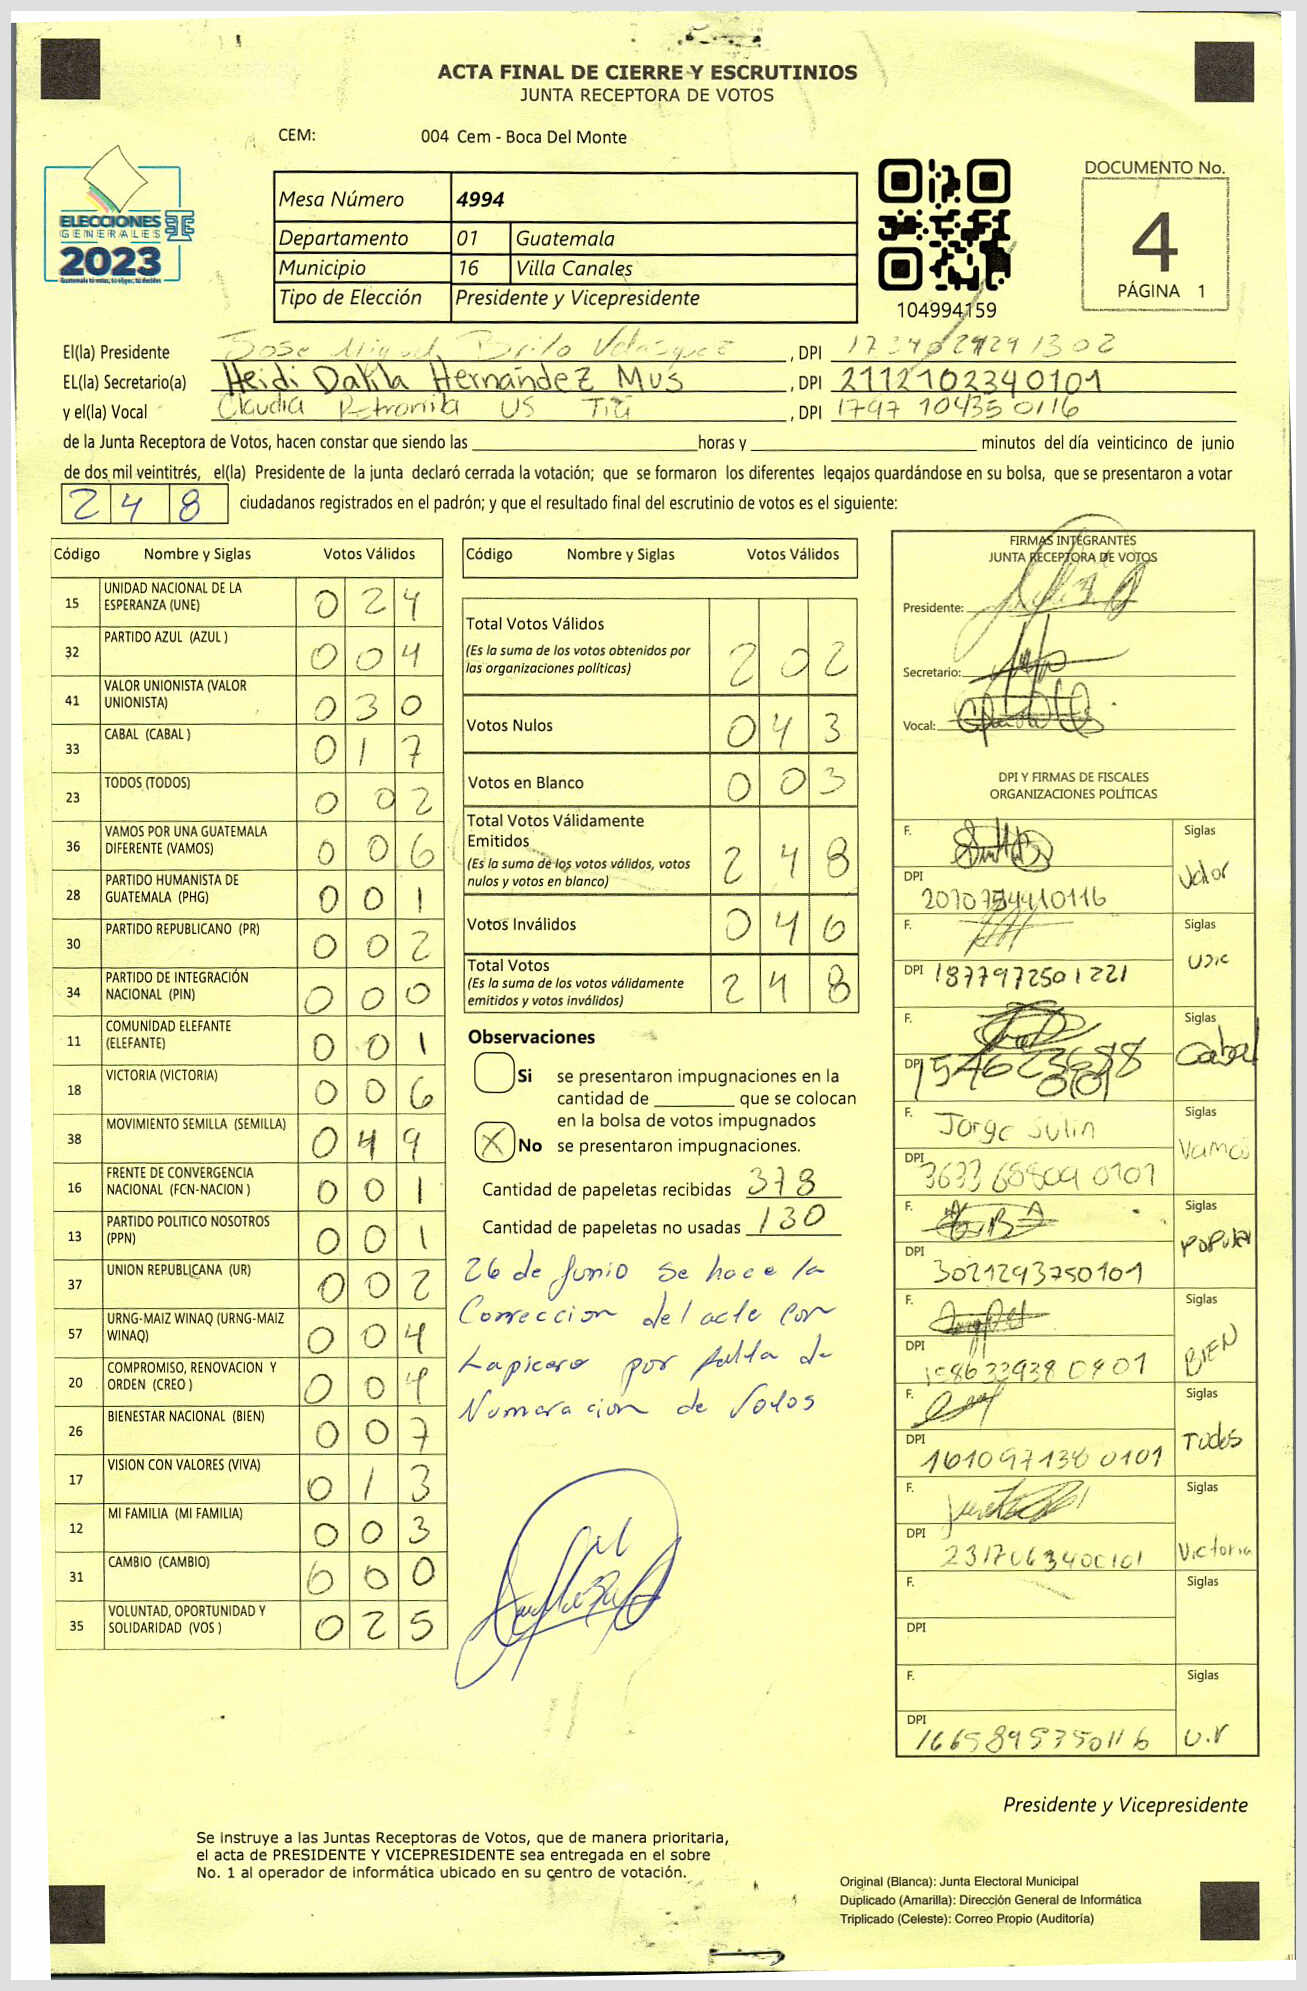 ACTA FINAL DE CIERRE Y ESCRUTINIOS
JUNTA RECEPTORA DE VOTOS
CEM: 004 Cem - Boca Del Monte
ELECCIONES
GENERALES
2023
Guatemala tú votas, tú eliges, tú decides
Mesa Número 4994
Departamento 01 Guatemala
Municipio 16 Villa Canales
Tipo de Elección Presidente y Vicepresidente
104994159
DOCUMENTO No.
4
PÁGINA 1
El(la) Presidente Jose Miguel Brito Velasquez, DPI
EL(la) Secretario(a) Heidi Dalila Hernández Mus, DPI 2112102340101
y el(la) Vocal Claudia Petronila US Tiu, DPI 1797 10435 0116
de la Junta Receptora de Votos, hacen constar que siendo las horas y minutos del día veinticinco de junio
de dos mil veintitrés, el(la) Presidente de la junta declaró cerrada la votación; que se formaron los diferentes legajos guardándose en su bolsa, que se presentaron a votar
248 ciudadanos registrados en el padrón; y que el resultado final del escrutinio de votos es el siguiente:
Código Nombre y Siglas Votos Válidos
15 UNIDAD NACIONAL DE LA ESPERANZA (UNE) 024
32 PARTIDO AZUL (AZUL ) 004
41 VALOR UNIONISTA (VALOR UNIONISTA) 030
33 CABAL (CABAL ) 017
23 TODOS (TODOS) 002
36 VAMOS POR UNA GUATEMALA DIFERENTE (VAMOS) 006
28 PARTIDO HUMANISTA DE GUATEMALA (PHG) 001
30 PARTIDO REPUBLICANO (PR) 002
34 PARTIDO DE INTEGRACIÓN NACIONAL (PIN) 000
11 COMUNIDAD ELEFANTE (ELEFANTE) 001
18 VICTORIA (VICTORIA) 006
38 MOVIMIENTO SEMILLA (SEMILLA) 049
16 FRENTE DE CONVERGENCIA NACIONAL (FCN-NACION ) 001
13 PARTIDO POLITICO NOSOTROS (PPN) 001
37 UNION REPUBLICANA (UR) 002
57 URNG-MAIZ WINAQ (URNG-MAIZ WINAQ) 004
20 COMPROMISO, RENOVACION Y ORDEN (CREO ) 004
26 BIENESTAR NACIONAL (BIEN) 007
17 VISION CON VALORES (VIVA) 013
12 MI FAMILIA (MI FAMILIA) 003
31 CAMBIO (CAMBIO) 000
35 VOLUNTAD, OPORTUNIDAD Y SOLIDARIDAD (VOS ) 025
Código Nombre y Siglas Votos Válidos
Total Votos Válidos 202
(Es la suma de los votos obtenidos por
las organizaciones políticas)
Votos Nulos 043
Votos en Blanco 003
Total Votos Válidamente
Emitidos 248
(Es la suma de los votos válidos, votos
nulos y votos en blanco)
Votos Inválidos 046
Total Votos 248
(Es la suma de los votos válidamente
emitidos y votos inválidos)
Observaciones
Si se presentaron impugnaciones en la
cantidad de que se colocan
en la bolsa de votos impugnados
X No se presentaron impugnaciones.
Cantidad de papeletas recibidas 378
Cantidad de papeletas no usadas 130
26 de Junio se hace la
Correccion del acte con
Lapicero por falta de
Numaracion de Votos
FIRMAS INTEGRANTES
JUNTA RECEPTORA DE VOTOS
Presidente:
Secretario:
Vocal:
DPI Y FIRMAS DE FISCALES
ORGANIZACIONES POLÍTICAS
F. Siglas
DPI Valor
F. Siglas
DPI 1877972501221
F. Siglas
DPI Cabal
F. Jorge Sulin Siglas
DPI 3633 68809 0101 Vamos
F. Siglas
DPI 3021293750101 POPULAR
F. Siglas
DPI BIEN
F. Siglas
DPI 161097138 0101 Todos
F. Siglas
DPI 2317063400101 Victoria
F. Siglas
DPI
F. Siglas
DPI 1665895750116 U.r
Presidente y Vicepresidente
Se instruye a las Juntas Receptoras de Votos, que de manera prioritaria,
el acta de PRESIDENTE Y VICEPRESIDENTE sea entregada en el sobre
No. 1 al operador de informática ubicado en su centro de votación.
Original (Blanca): Junta Electoral Municipal
Duplicado (Amarilla): Dirección General de Informática
Triplicado (Celeste): Correo Propio (Auditoría)